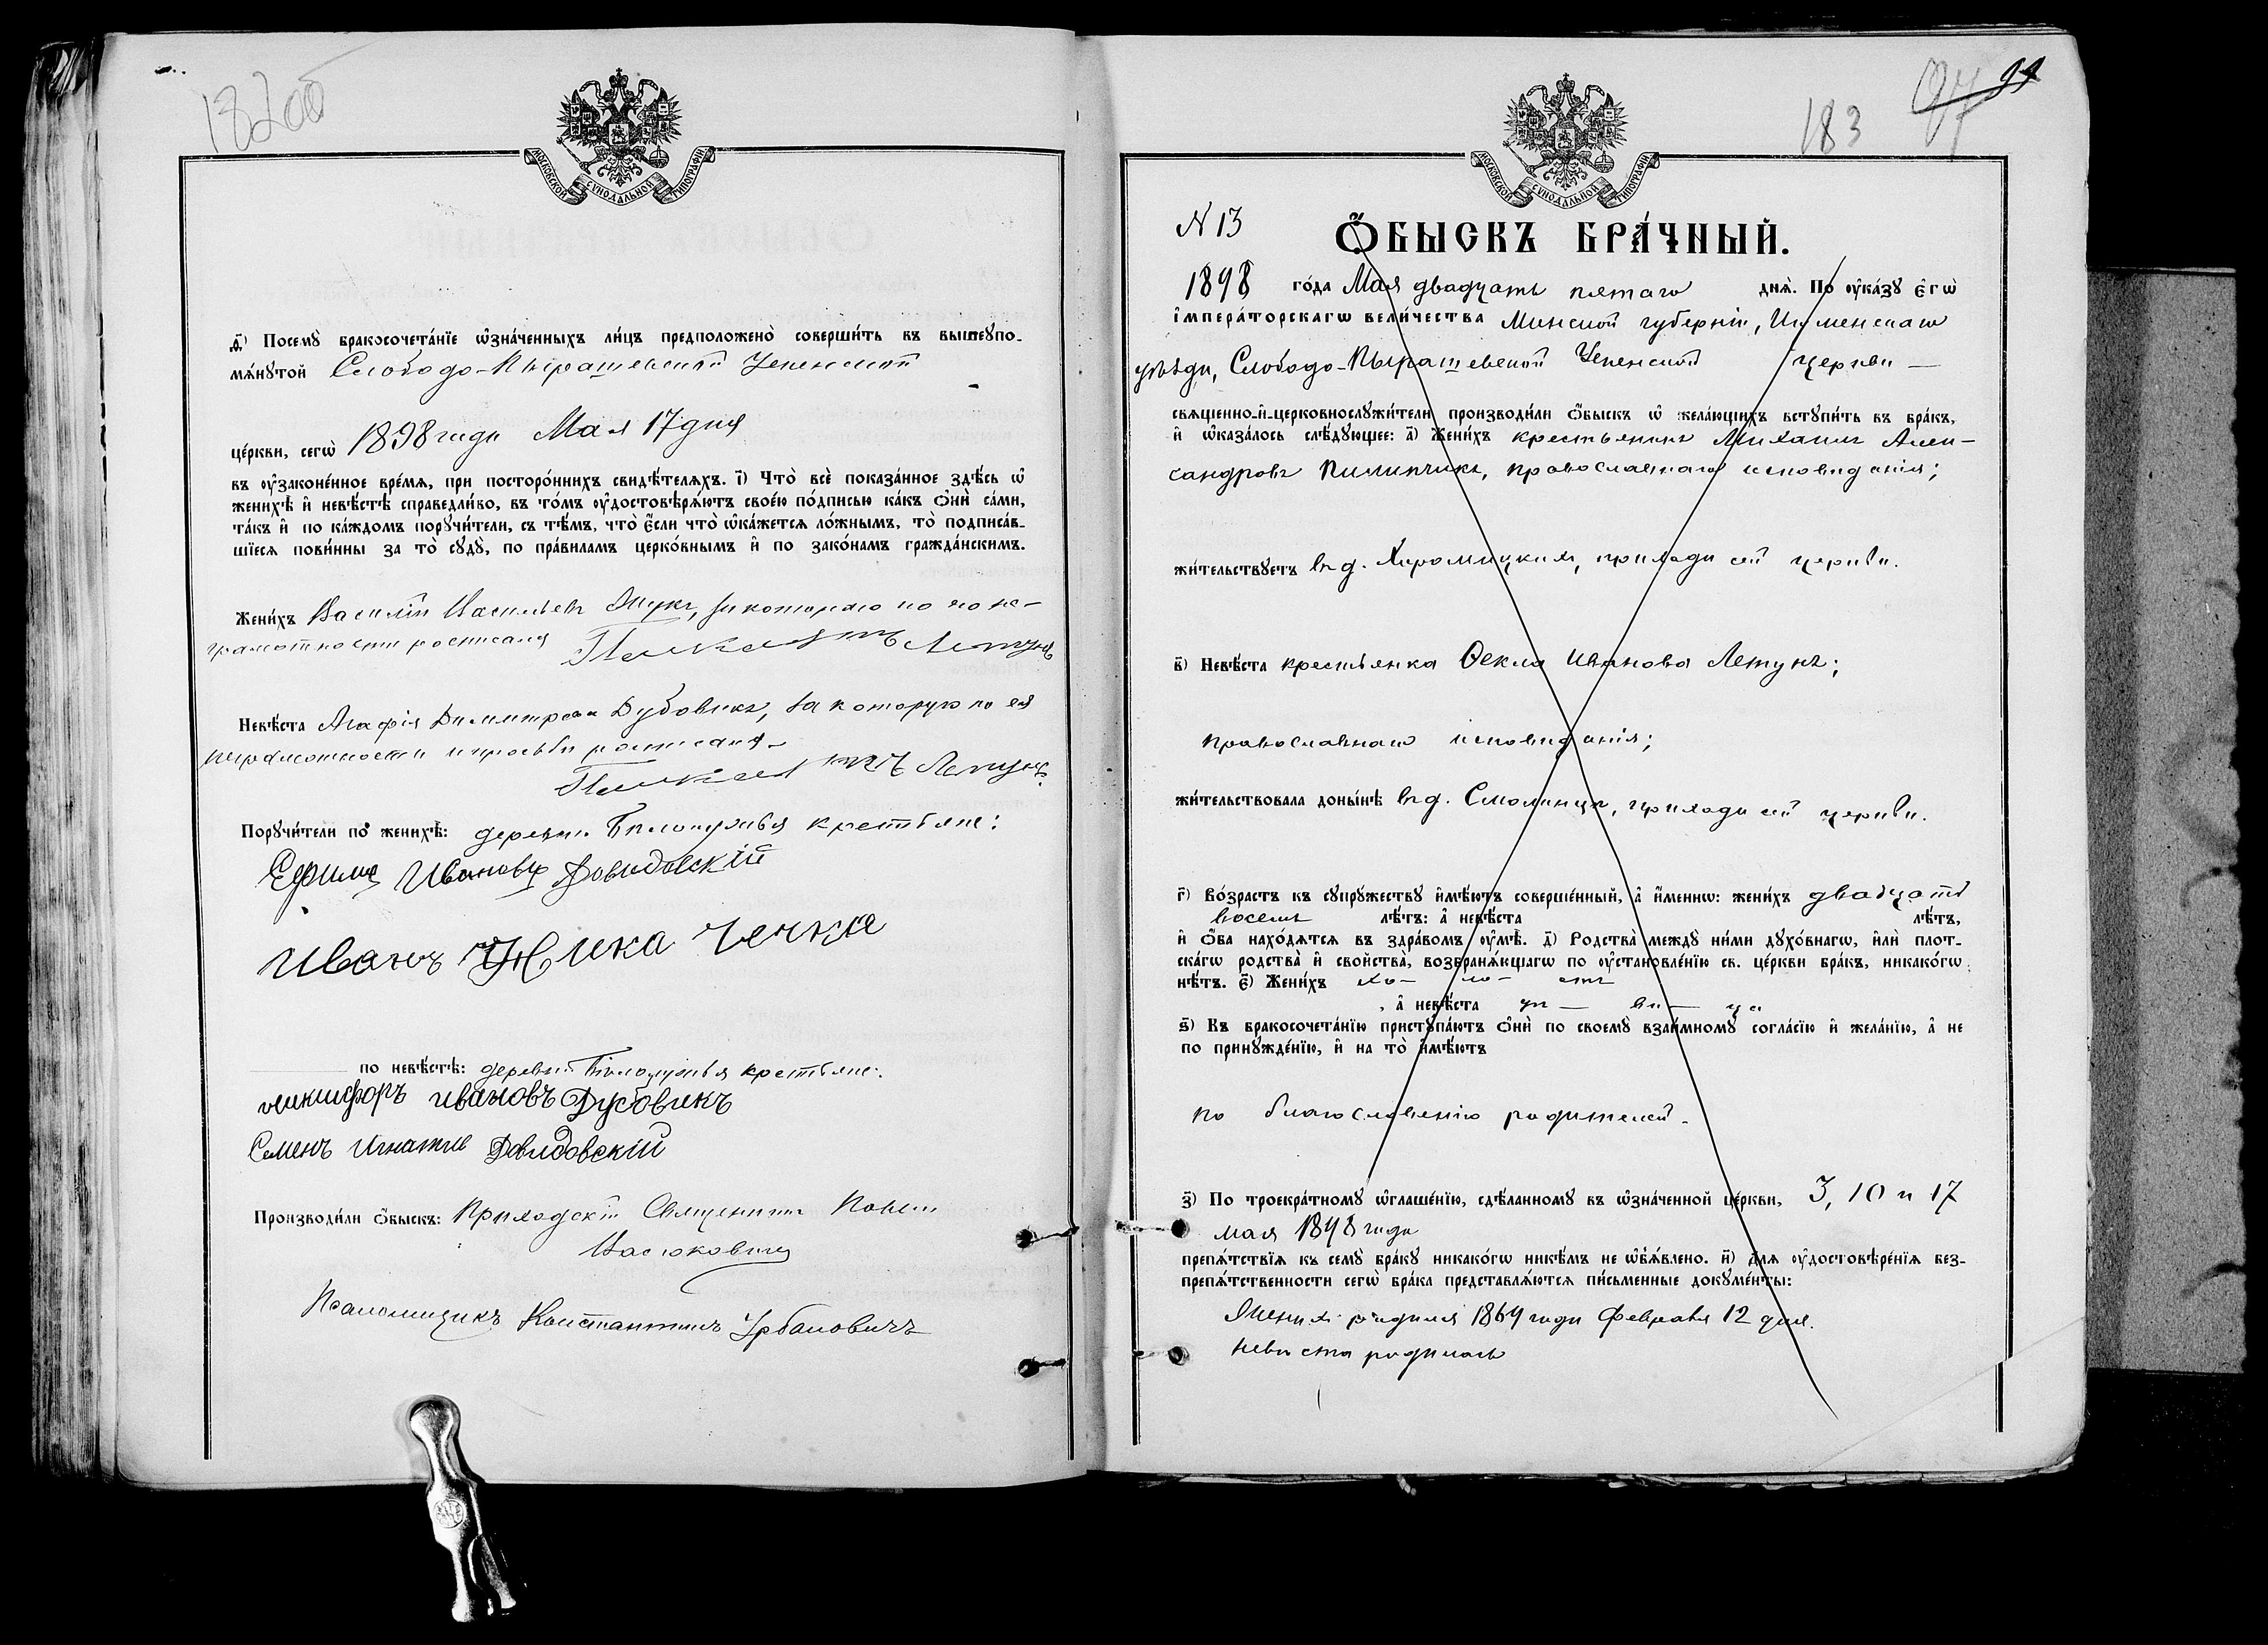 182об
МОСКОВСКОЙ СѴНОДАЛЬНОЙ ТИПОГРАФІИ
Посемꙋ̀ бракосочета́нїе ѡ҆зна́ченныхъ ли́цъ предположено̀ соверши́ть въ вышеупо-
мѧ́нутой Слободо-Пырашевской Успенской
це́ркви, сегѡ̀ 1898 года Мая 17 дня
въ ᲂу҆законе́нное вре́мѧ, при посторо́ннихъ свидѣ́телѧхъ. і҃) Что̀ всѐ показа́нное здѣ́сь ѡ҆
женихѣ̀ и҆ невѣ́стѣ справедли́во, въ то́мъ ᲂу҆достовѣрѧ́ютъ свое́ю по́дписью ка́къ ѻ҆нѝ са́ми,
та́къ и҆ по ка́ждомъ порꙋчи́тели, съ тѣ́мъ, что̀ є҆́сли что̀ ѡ҆ка́жетсѧ ло́жнымъ, то̀ подписа́в-
шїесѧ пови́нны за то̀ сꙋдꙋ̀, по пра́виламъ церко́внымъ и҆ по зако́намъ гражда́нскимъ.
Жени́хъ Василій Васильевъ Жукъ, за котораго по его не-
грамотности росписался Летунъ
Невѣ́ста Агафія Димитрова Дубовикъ, за которую по ея
неграмотности и просьбѣ росписался
Летунъ
Порꙋчи́тели по женихѣ̀: деревни крестьяне:
Ефимъ Ивановъ Довидовскій
Иванъ
по невѣ́стѣ: деревни крестьяне:
Никифоръ Ивановъ Дубовикъ
Семенъ Игнатіев Довидовскій
Производи́ли ѻ҆́быскъ: Приходскій Священникъ
Псаломщикъ Константинъ Урбановичъ
183 99
МОСКОВСКОЙ СѴНОДАЛЬНОЙ ТИПОГРАФІИ
N 13
Ѻ҆́БЫСКЪ БРА́ЧНЫЙ.
1898 го́да Мая двадцать пятаго днѧ̀. По ᲂу҆ка́зꙋ є҆гѡ̀
і҆мпера́торскагѡ вели́чества Минской губерніи, Игуменскаго
уѣзда, Слободо-Пырашевской Успенской церкви —
свѧще́нно-и҆-церковнослꙋжи́тели производи́ли ѻ҆́быскъ ѡ҆ жела́ющихъ вступи́ть въ бра́къ,
и҆ ѡ҆каза́лось слѣ́дꙋющее: а҃) Жени́хъ крестьянинъ Михаилъ Алек-
сандровъ Пилипчикъ, православнаго исповѣданія;
жи́тельствꙋетъ въ д. Хоромицкихъ, прихода сей церкви.
в҃) Невѣ́ста крестьянка Ѳекла Иванова Летунъ;
православнаго исповѣданія;
жи́тельствовала доны́нѣ въ д. Смолинцѣ, прихода сей церкви.
г҃) Во́зрастъ къ сꙋпрꙋ́жествꙋ и҆мѣ́ютъ соверше́нный, а҆ и҆́меннѡ: жени́хъ двадцать
восемь лѣ́тъ: а҆ невѣ́ста лѣ́тъ,
и҆ ѻ҆́ба нахо́дѧтсѧ въ здра́вомъ ᲂу҆мѣ̀. д҃) Родства̀ междꙋ̀ ни́ми дꙋхо́внагѡ, и҆лѝ плот-
ска́гѡ родства̀ и҆ свойства̀, возбранѧ́ющагѡ по ᲂу҆становле́нїю св. це́ркви бра́къ, никако́гѡ
нѣ́тъ. є҃) Жени́хъ хо- ло- стъ
, а҆ невѣ́ста дѣ — ви — ца
ѕ҃) Къ бракосочета́нїю пристꙋпа́ютъ ѻ҆нѝ по своемꙋ̀ взаи́мномꙋ согла́сїю и҆ жела́нїю, а҆ не
по принꙋжде́нїю, и҆ на то̀ и҆мѣ́ютъ
по благословенію родителей.
з҃) По троекра́тномꙋ ѡ҆глаше́нїю, сдѣ́ланномꙋ въ ѡ҆зна́ченной це́ркви, 3, 10 и 17
мая 1898 года
препѧ́тствїѧ къ семꙋ̀ бра́кꙋ никако́гѡ никѣ́мъ не ѡ҆б̾ѧ́влено. и҃) Длѧ ᲂу҆достовѣре́нїѧ без-
препѧ́тственности сегѡ̀ бра́ка представлѧ́ютсѧ пи́сьменные докꙋме́нты:
Женихъ родился 1869 года Февраля 12 дня.
Невѣста родилась